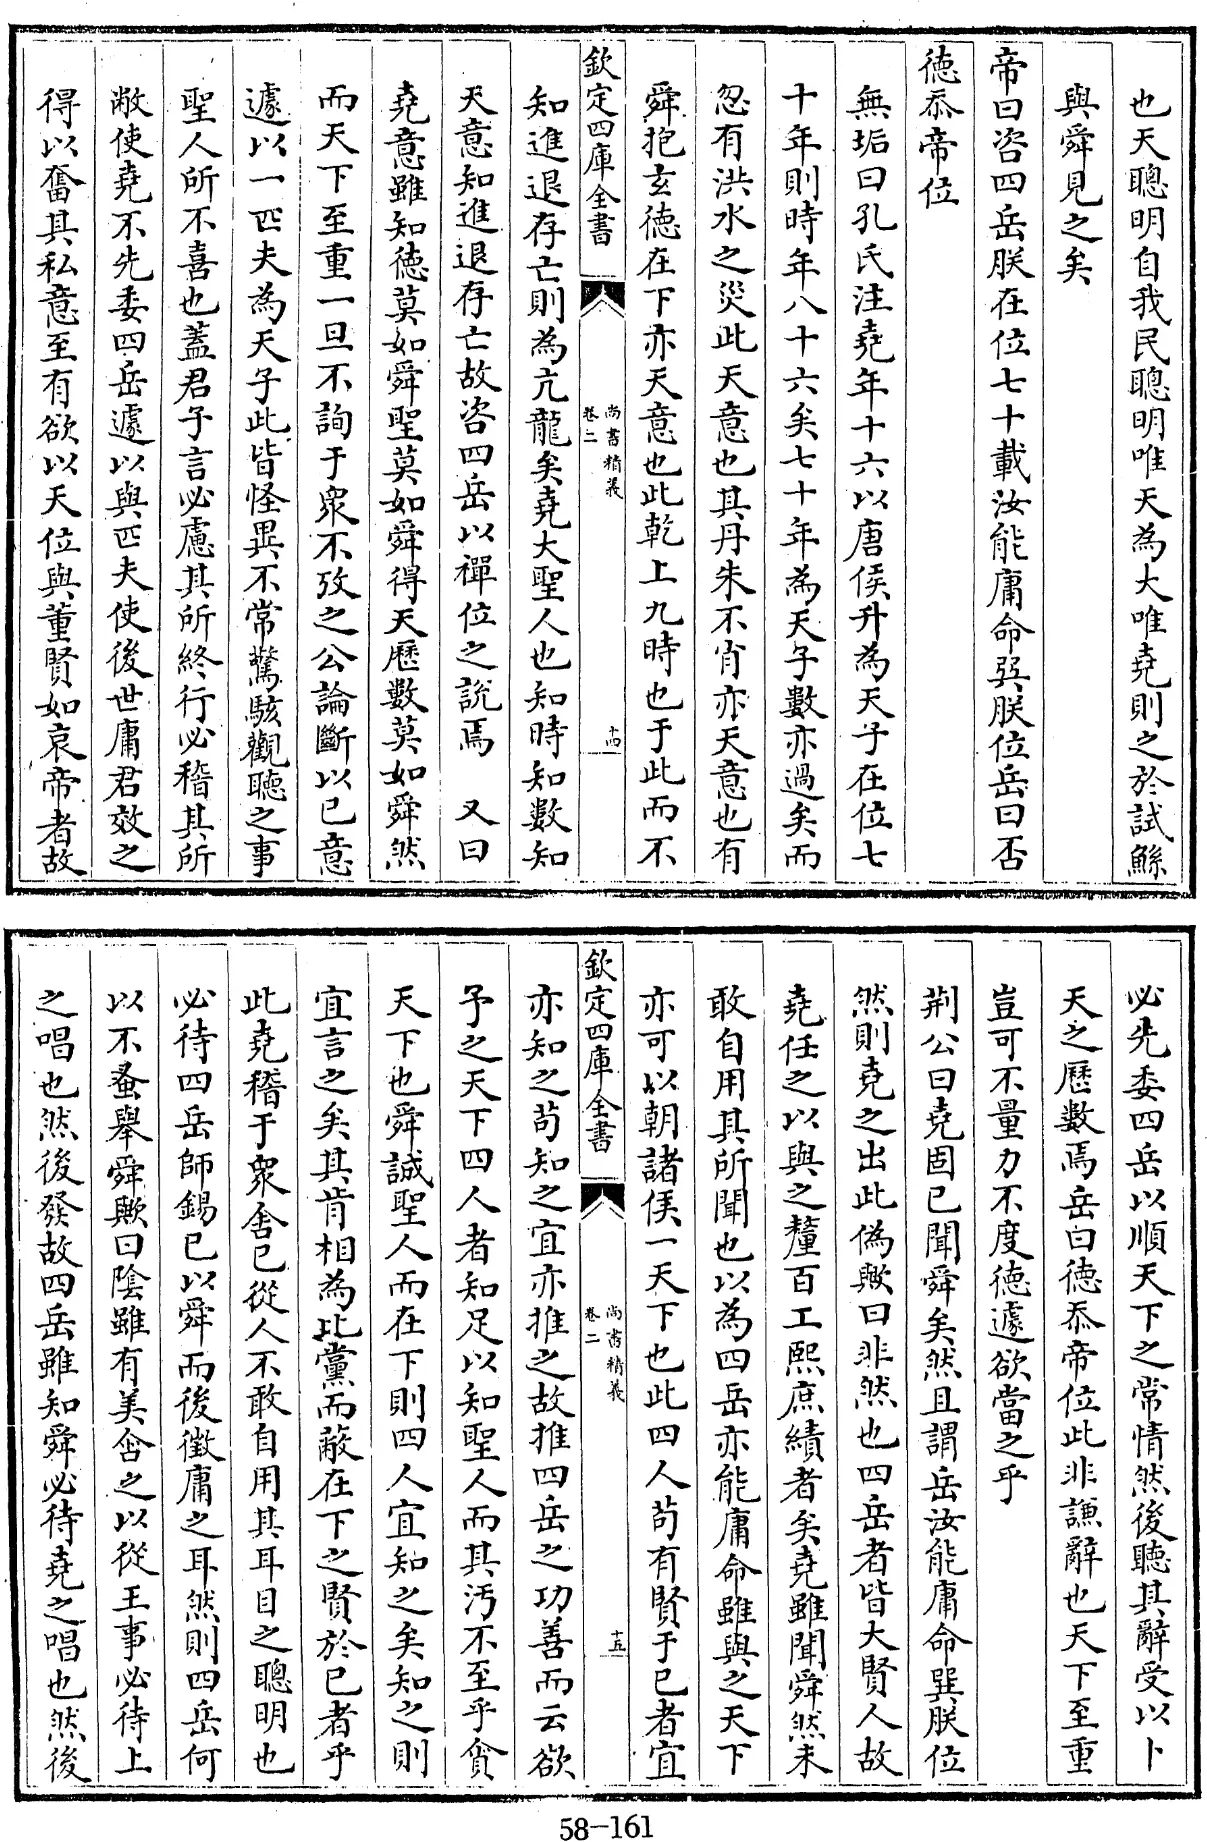 也天聰明自我民聰明唯天為大唯堯則之於試鯀
與舜見之矣
帝曰咨四岳朕在位七十載汝能庸命巽朕位岳曰否
德忝帝位
無垢曰孔氏注堯年十六以唐侯升為天子在位七
十年則時年八十六矣七十年為天子數亦過矣而
忽有洪水之災此天意也其丹朱不肖亦天意也有
舜抱玄德在下亦天意也此乾上九時也于此而不
欽定四庫全書
尚書精義
卷二
十四
知進退存亡則為亢龍矣堯大聖人也知時知數知
天意知進退存亡故咨四岳以禪位之說焉 又曰
堯意雖知德莫如舜聖莫如舜得天歷數莫如舜然
而天下至重一旦不詢于衆不攷之公論斷以已意
遽以一匹夫為天子此皆怪異不常驚駭觀聽之事
聖人所不喜也蓋君子言必慮其所終行必稽其所
敝使堯不先委四岳遽以與匹夫使後世庸君效之
得以奮其私意至有欲以天位與董賢如哀帝者故
必先委四岳以順天下之常情然後聽其辭受以卜
天之歷數焉岳曰德忝帝位此非謙辭也天下至重
豈可不量力不度德遽欲當之乎
荆公曰堯固已聞舜矣然且謂岳汝能庸命巽朕位
然則堯之出此偽歟曰非然也四岳者皆大賢人故
堯任之以與之釐百工熙庶績者矣堯雖聞舜然未
敢自用其所聞也以為四岳亦能庸命雖與之天下
亦可以朝諸侯一天下也此四人茍有賢于已者宜
欽定四庫全書
尚書精義
卷二
十五
亦知之茍知之宜亦推之故推四岳之功善而云欲
予之天下四人者知足以知聖人而其汚不至乎貪
天下也舜誠聖人而在下則四人宜知之矣知之則
宜言之矣其肯相為比黨而蔽在下之賢於已者乎
此堯稽于衆舍已從人不敢自用其耳目之聰明也
必待四岳師錫已以舜而後徵庸之耳然則四岳何
以不蚤舉舜歟曰陰雖有美含之以從王事必待上
之唱也然後發故四岳雖知舜必待堯之唱也然後
58-161